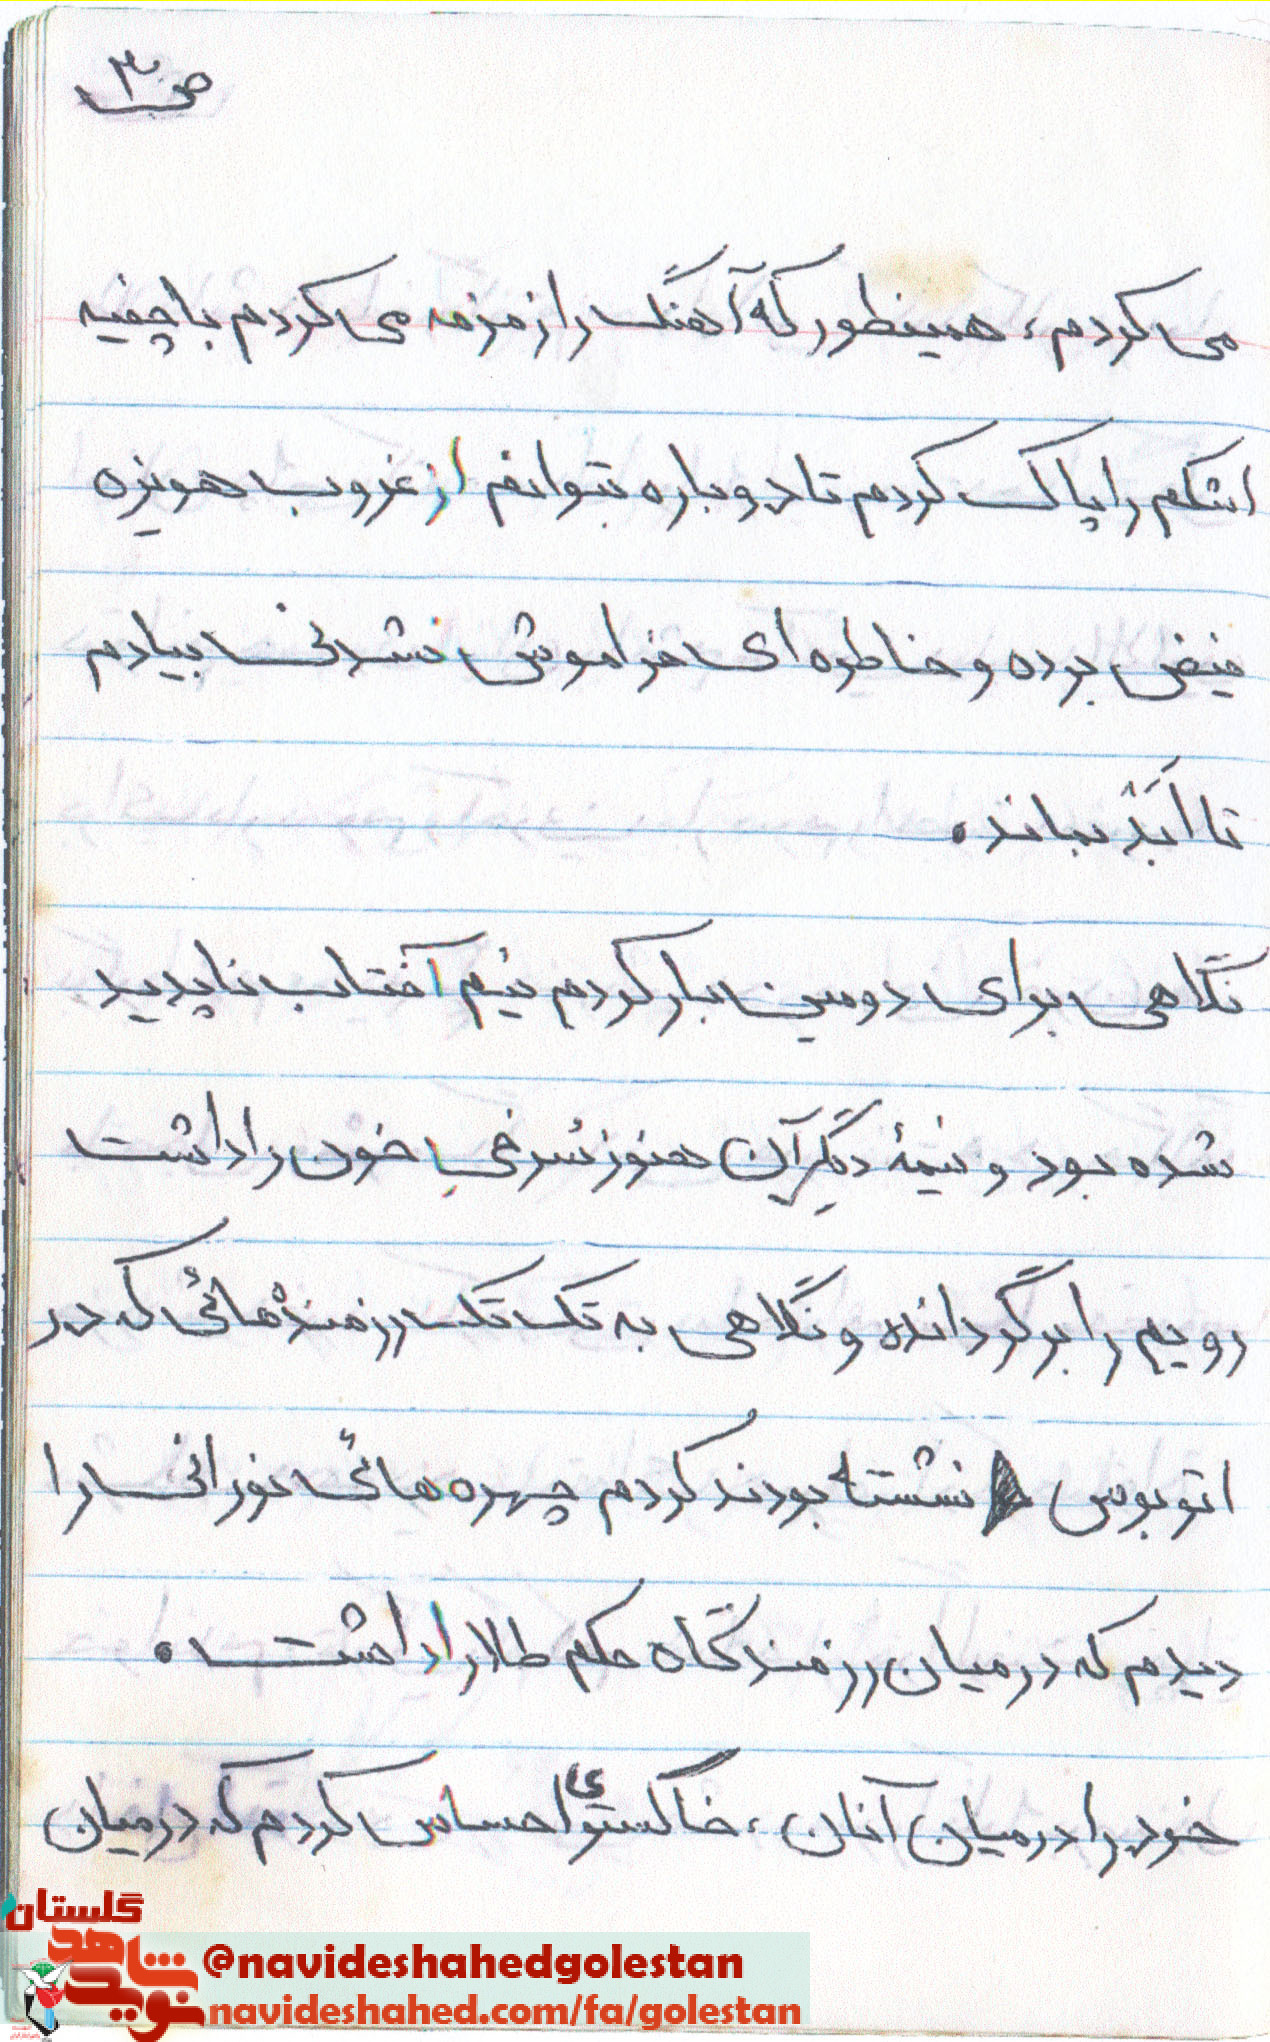 ص ۳
می کردم، همینطور که آهنگ را زمزمه می کردم با چفیه
اشکم را پاک کردم تا دوباره بتوانم از غروب هویزه
فیض برده و خاطره ای فراموش نشدنی بیادم
تا اَبَدْ بماند.
نگاهی برای دومین بار کردم نیم آفتاب ناپدید
شده بود و نیمهٔ دیگرِ آن هنوز سُرخیِ خون را داشت
رویم را برگردانده و نگاهی به تک تک رزمنده هائی که در
اتوبوس نشسته بودند کردم چهره هائی نورانی را
دیدم که در میان رزمندگاه حکم طلا را داشت.
خود را در میان آنان، خاکستری احساس کردم که در میان
گلستان
نوید شاهد
@navideshahedgolestan
navideshahed.com/fa/golestan